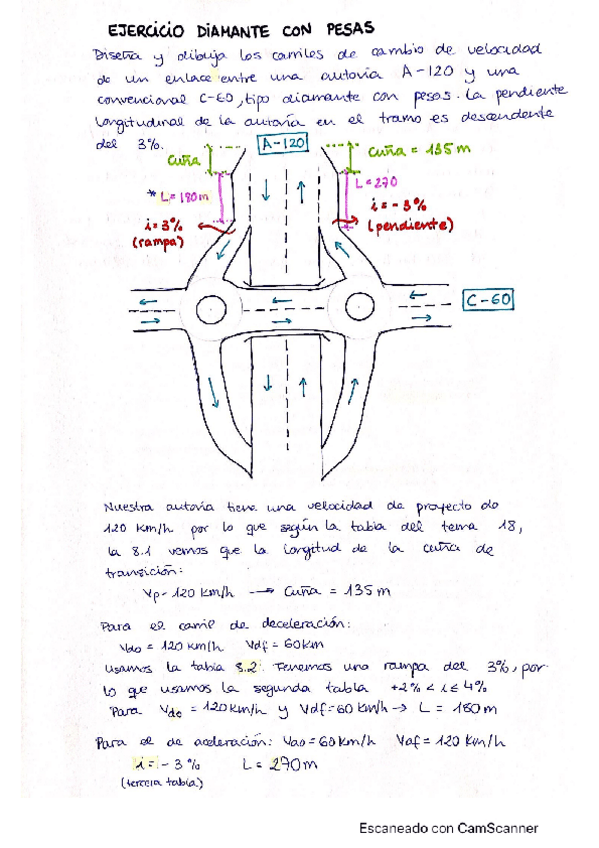 EJERCICIO DIAMANTE CON PESAS
Diseña y dibuja los carriles de cambio de velocidad
de un enlace entre una autovía A-120 y una
convencional C-60, tipo diamante con pesas. La pendiente
longitudinal de la autovía en el tramo es descendente
del 3%.
A-120
cuña
cuña = 135 m
* L = 180 m
L = 270
i = 3%
(rampa)
i = - 3%
(pendiente)
C-60
Nuestra autovía tiene una velocidad de proyecto de
120 km/h por lo que según la tabla del tema 18,
la 8.1 vemos que la longitud de la cuña de
transición:
Vp - 120 km/h → Cuña = 135 m
Para el carril de deceleración:
Vdo = 120 km/h Vdf = 60km
Usamos la tabla 8.2. Tenemos una rampa del 3%, por
lo que usamos la segunda tabla +2% < i ≤ 4%
Para Vdo = 120 km/h y Vdf = 60 km/h → L = 180 m
Para el de aceleración: Vao = 60 km/h Vaf = 120 km/h
i = - 3% L = 270 m
(tercera tabla)
Escaneado con CamScanner